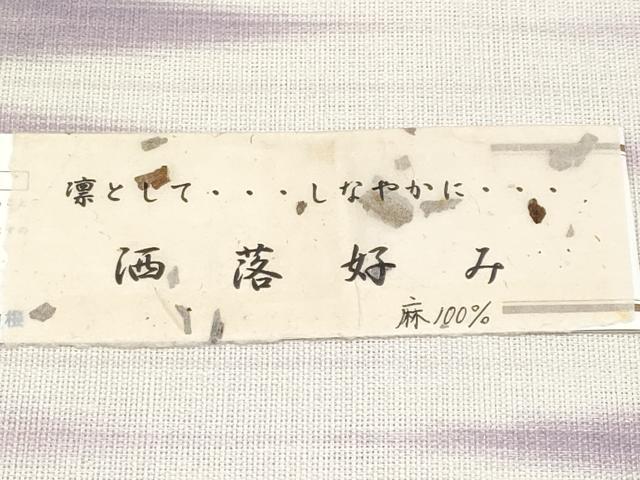 凛として・・・しなやかに・・・
洒落好み
麻100%